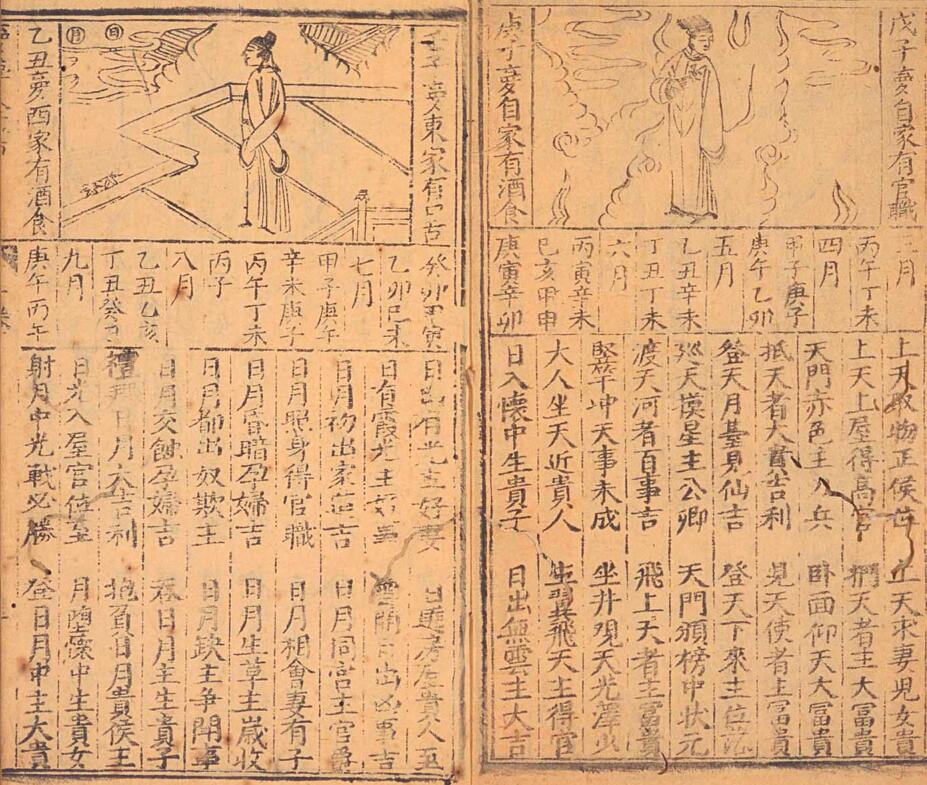 戊子夢自家有官職
夢自家有酒食
月
丙午丁未
四月
甲子庚子
庚午乙卯
五月
乙丑辛未
丁丑丁未
六月
丙寅辛未
己亥甲申
庚寅辛卯
上天取物正侯位
上天求妻兒女貴
上天上屋得高官
捫天者主大富貴
天門赤色主人兵
卧面仰天大富貴
抵天者大貴吉利
見天使者主富貴
登天月臺見仙吉
登天下來主位
巡天摸星主公卿
天門頒榜中狀元
渡天河者百事吉
飛上天者主富貴
乾坤天事未成
坐井观天光
大人坐天近貴人
生翼飛天主得官
日入懷中生貴子
日出無雲主大吉
夢東家有口舌
乙丑夢西家有酒食
日
月
癸卯甲寅
乙卯己未
七月
甲子庚午
辛未庚子
丙午丁未
丙子
八月
乙丑乙亥
丁丑癸
九月
庚午丙午
日出有光主好妻
日
貴人至
日有霞光主好事
雲開日出凶事吉
日月初出家
吉
日月同宫主官爵
日月照身得官職
日月相會妻有子
日月昏暗孕婦吉
日月生草主歲收
日月都出奴欺主
日月缺主争鬪事
日月交蝕孕婦吉
吞日月主生貴子
禮拜日月大吉利
抱負日月貴侯王
日光入屋官位至
月墮懷中生貴女
射月中光戰必勝
登日月中主大貴